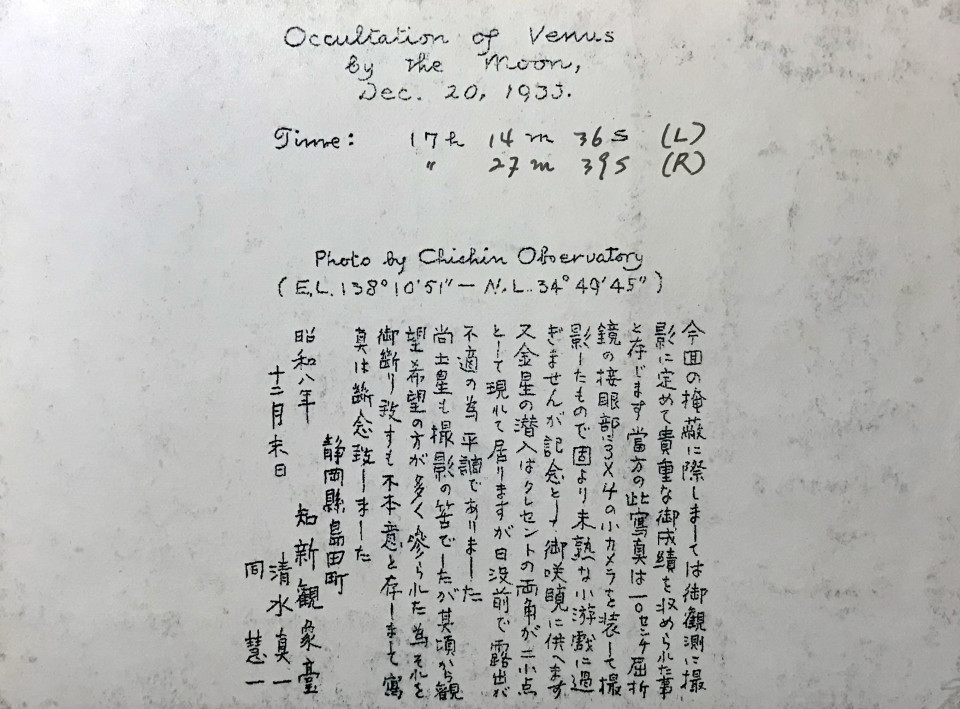 Occultation of Venus
by the Moon,
Dec. 20, 1933.
Time: 17h 14m 36s (L)
〃 27m 39s (R)
Photo by Chishin Observatory
(E.L. 138°10'51" — N.L. 34°49'45")
今回の掩蔽に際しましては御観測に撮
影に定めて貴重な御成績を収められた事
と存じます 當方の此寫真は一〇センチ屈折
鏡の接眼部に3×4の小カメラを装して撮
影したもので固より未熟な小遊戯に過
ぎませんが記念として御咲覧に供へます
又金星の潜入はクレセントの両角が二小点
として現れて居りますが日没前で露出が
不適の為 平調でありました
尚土星も撮影の筈でしたが其頃から観
望希望の方が多く参られた為それを
御断り致すも不本意と存じまして寫
真は断念致しました
静岡縣島田町
昭和八年 知新観象臺
十二月末日 清水真一
同 慧一